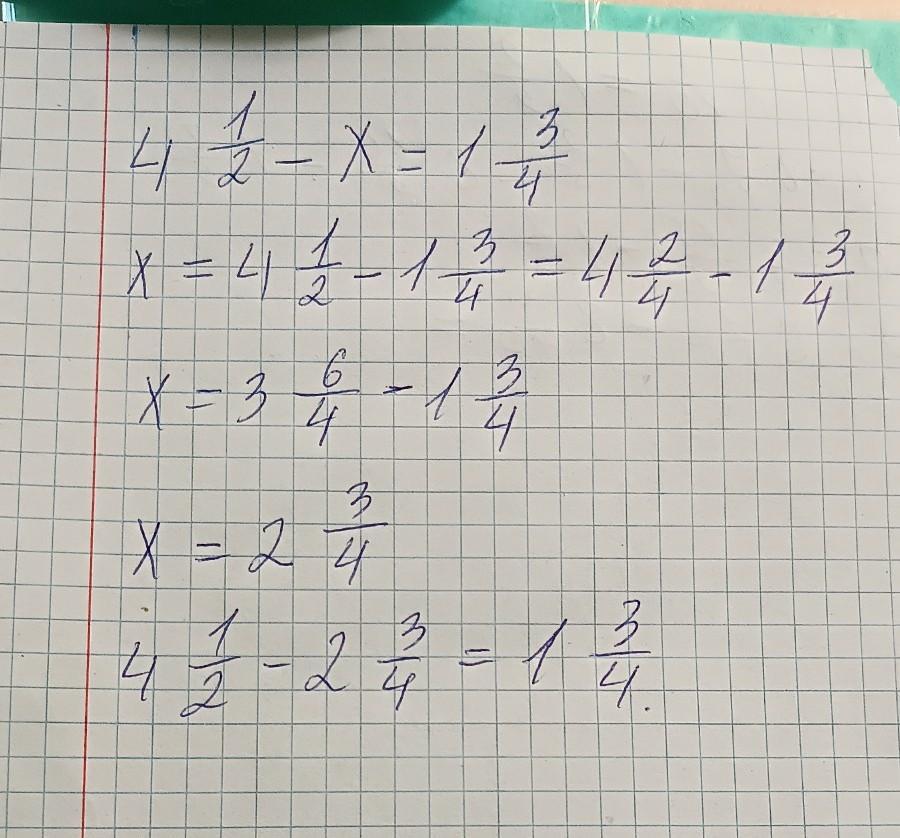 4 1/2 - x = 1 3/4
x = 4 1/2 - 1 3/4 = 4 2/4 - 1 3/4
x = 3 6/4 - 1 3/4
x = 2 3/4
4 1/2 - 2 3/4 = 1 3/4.